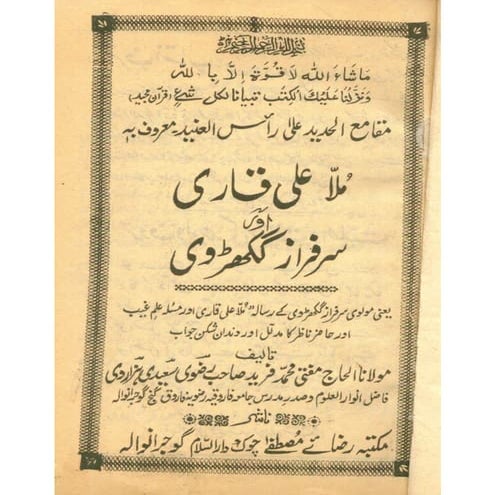 بسم اللہ الرحمن الرحیم
ماشاء اللہ لا قوة إلا باللہ
ونزلنا علیک الکتب تبیانا لکل شئ (قرآن مجید)
مقامع الحدید علیٰ رأس العنید ۔ معروف بہ
مُلّا علی قاری
اور
سرفراز گکھڑوی
یعنی مولوی سرفراز گکھڑوی کے رسالہ "ملا علی قاری اور مسئلہ علم غیب
اور حاضر ناظر کا مدلّل اور دندان شکن جواب
تالیف
مولانا الحاج مفتی محمد فرید صاحب رضوی سعیدی ہزاروی
فاضل انوار العلوم و صدر مدرس جامعہ فاروقیہ رضویہ فاروق گنج گوجرانوالہ
ناشر
مکتبہ رضائے مصطفےٰ چوک دارالسلام گوجرانوالہ